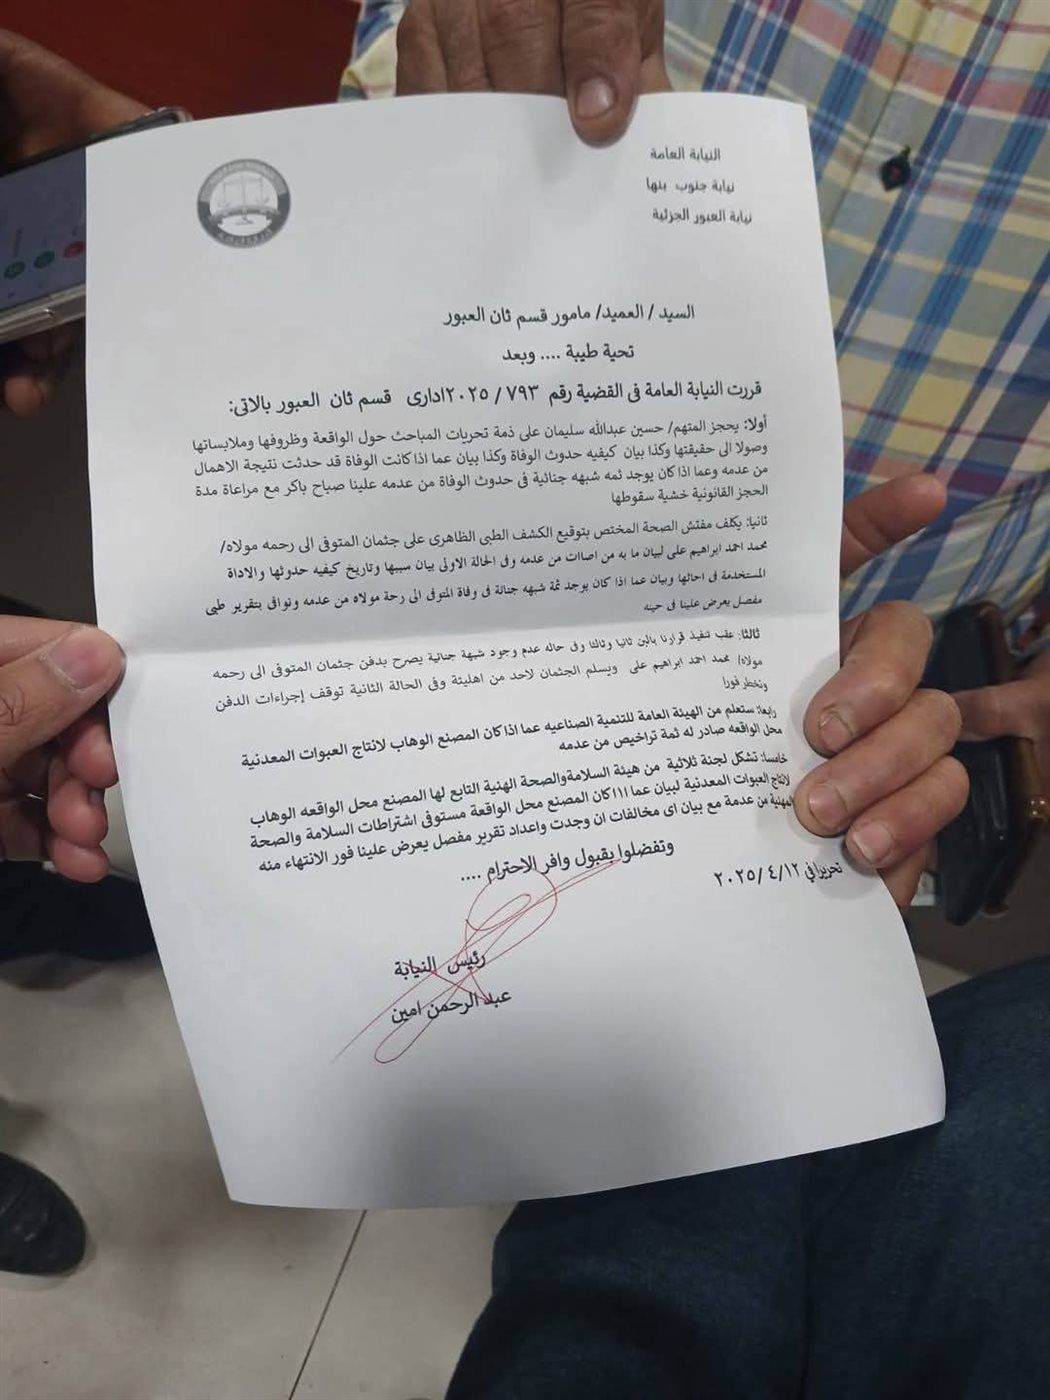 النيابة العامة
نيابة جنوب بنها
نيابة العبور الجزئية
السيد / العميد/ مامور قسم ثان العبور
تحية طيبة .... وبعد
قررت النيابة العامة فى القضية رقم ٧٩٣ / ٢٠٢٥ادارى قسم ثان العبور بالاتى:
أولا: يحجز المتهم/ حسين عبدالله سليمان على ذمة تحريات المباحث حول الواقعة وظروفها وملابساتها
وصولا الى حقيقتها وكذا بيان كيفيه حدوث الوفاة وكذا بيان عما اذا كانت الوفاة قد حدثت نتيجة الاهمال
من عدمه وعما اذا كان يوجد ثمه شبهه جنائية فى حدوث الوفاة من عدمه علينا صباح باكر مع مراعاة مدة
الحجز القانونية خشية سقوطها
ثانيا: يكلف مفتش الصحة المختص بتوقيع الكشف الطبى الظاهرى على جثمان المتوفى الى رحمه مولاه/
محمد احمد ابراهيم على لبيان ما به من اصاات من عدمه وفى الحالة الاولى بيان سببها وتاريخ كيفيه حدوثها والاداة
المستخدمة فى احاثها وبيان عما اذا كان يوجد ثمة شبهه جنائة فى وفاة المتوفى الى رحة مولاه من عدمه ونوافى بتقرير طبى
مفصل يعرض علينا فى حينه
ثالثا: عقب تنفيذ قرارنا بالبن ثانيا وثالثا وفى حاله عدم وجود شبهة جنائية يصرح بدفن جثمان المتوفى الى رحمه
مولاه/ محمد احمد ابراهيم على ويسلم الجثمان لاحد من اهليئة وفى الحالة الثانية توقف إجراءات الدفن
ونخطر فورا
رابعا: ستعلم من الهيئة العامة للتنمية الصناعيه عما اذا كان المصنع الوهاب لانتاج العبوات المعدنية
محل الواقعه صادر له ثمة تراخيص من عدمه
خامسا: تشكل لجنة ثلاثية من هيئة السلامةوالصحة الهنية التابع لها المصنع محل الواقعه الوهاب
لانتاج العبوات المعدنية لبيان عما ااا كان المصنع محل الواقعة مستوفى اشتراطات السلامة والصحة
المهنية من عدمة مع بيان اى مخالفات ان وجدت واعداد تقرير مفصل يعرض علينا فور الانتهاء منه
وتفضلوا بقبول وافر الاحترام ....
تحريرا في ١٢/ ٤ /٢٠٢٥
رئيس النيابة
عبد الرحمن امين